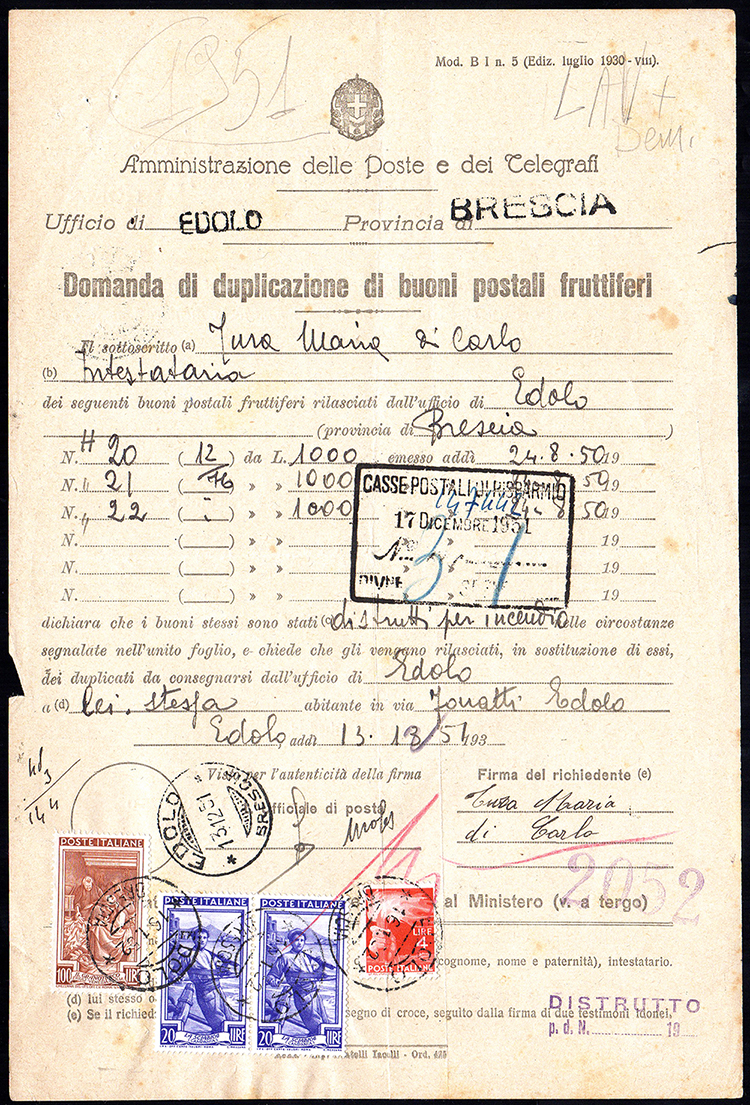 1951
Mod. B I n. 5 (Ediz. luglio 1930 - VIII).
LAV +
Dem.
Amministrazione delle Poste e dei Telegrafi
Ufficio di EDOLO Provincia di BRESCIA
Domanda di duplicazione di buoni postali fruttiferi
Il sottoscritto (a) Tusa Maria di Carlo
(b) Intestataria
dei seguenti buoni postali fruttiferi rilasciati dall'ufficio di Edolo
(provincia di Brescia)
N. H 20 (12) da L. 1000 emesso addì 24.8.50 19
N. " 21 (76) » » 1000 50 19
N. " 22 ( ) » » 1000 24-8 50 19
N. ( ) » » » » 19
N. ( ) » » » » 19
N. ( ) » » » » 19
CASSE POSTALI DI RISPARMIO
17 DICEMBRE 1951
dichiara che i buoni stessi sono stati (c) distrutti per incendio nelle circostanze
segnalate nell'unito foglio, e chiede che gli vengano rilasciati, in sostituzione di essi,
dei duplicati da consegnarsi dall'ufficio di Edolo
a (d) lei stessa abitante in via Edolo
Edolo, addì 13. 12 51 193
Visto per l'autenticità della firma
Firma del richiedente (e)
fficiale di posta
Tusa Maria
di Carlo
144
EDOLO BRESCIA
13.12.51
2052
al Ministero (v. a tergo)
POSTE ITALIANE
100 LIRE
POSTE ITALIANE
20 LIRE
POSTE ITALIANE
20 LIRE
LIRE 4
POSTA ITALIANA
cognome, nome e paternità), intestatario.
(d) lui stesso o
(e) Se il richied segno di croce, seguito dalla firma di due testimoni idonei,
DISTRUTTO
p. d. N. 19
Ord. 425